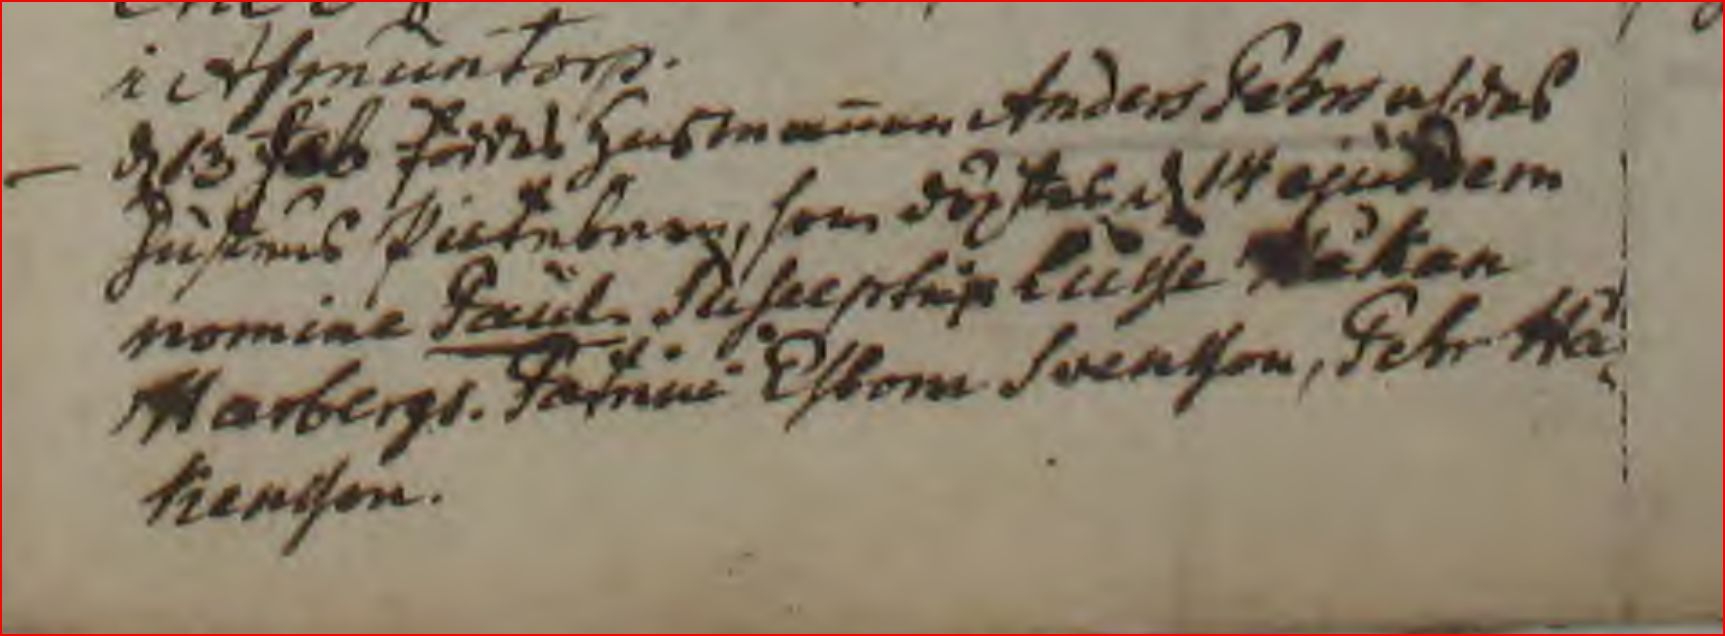 i Asmuntorp.
d 13 Feb föddes Husmannen Anders Pehrs
hustrus Piltebarn, som döptes d 14 ejusdem
nomine Paul. Susceptrix Lusse Håkan
Marbergs. Patrini Esborn Svensson, Pehr Hå
kensson.